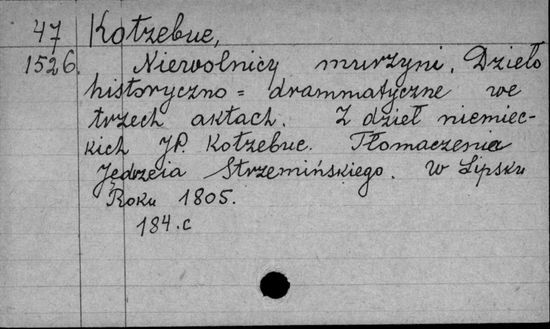 47 Kotzebue,
1526. Niewolnicy murzyni. Dzieło
historyczno = drammatyczne we
trzech aktach. Z dzieł niemiec-
kich JP. Kotzebue. Tłomaczenia
Jędrzeia Strzemińskiego. w Lipsku
Roku 1805.
184.c